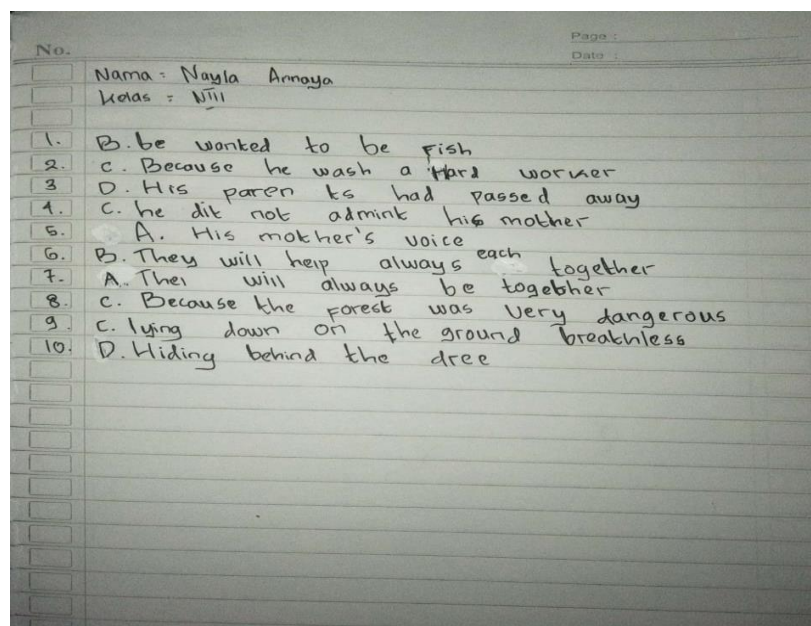 Page :
No.
Date :
Nama : Nayla Annaya
Kelas = VIII
1. B. be wanted to be Fish
2. C. Because he wash a Hard worker
3 D. His paren ts had passed away
4. C. he dit not admint his mother
5. A. His mother's voice
6. B. They will help always each together
7. A. Thei will always be together
8. C. Because the forest was very dangerous
9. C. lying down on the ground breathless
10. D. Hiding behind the dree